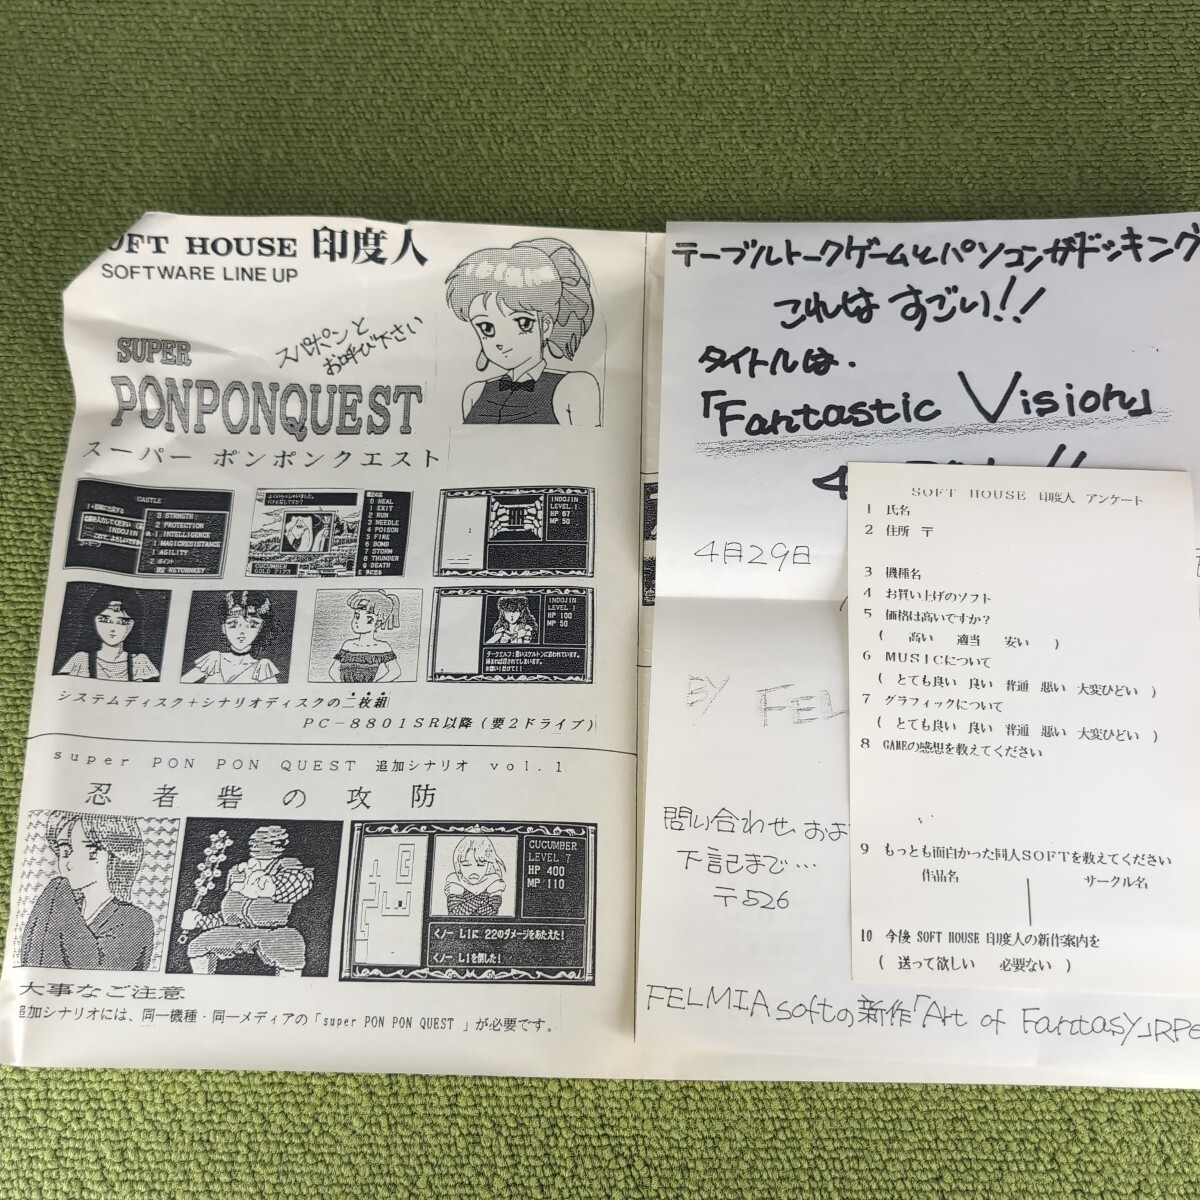 OFT HOUSE 印度人
SOFTWARE LINE UP
スパポンと
お呼び下さい
SUPER
PONPONQUEST
スーパー ポンポンクエスト
CASTLE
3 STRNGTH
2 PROTECTION
1 INTELLIGENCE
1 MAGICRESISTANCE
1 AGILITY
INDOJIN
RETURNKEY
0 HEAL
1 EXIT
2 RUN
3 NEEDLE
4 POISON
5 FIRE
6 BOMB
7 STORM
8 THUNDER
9 DEATH
CUCUMBER
INDOJIN
LEVEL 1
HP 67
MP 50
INDOJIN
LEVEL 1
HP 100
MP 50
システムディスク+シナリオディスクの二枚組
PC-8801SR以降(要2ドライブ)
super PON PON QUEST 追加シナリオ vol.1
忍者砦の攻防
CUCUMBER
LEVEL 7
HP 400
MP 110
くノ一 L1に 22のダメージをあたえた!
くノ一 L1を倒した!
大事なご注意
追加シナリオには、同一機種・同一メディアの「super PON PON QUEST 」が必要です。
テーブルトークゲームとパソコンがドッキング
これは すごい!!
タイトルは.
「Fantastic Vision」
4月29日
BY FEL
問い合わせ およ
下記まで…
〒526
FELMIA softの新作「Art of Fantasy」RPG
SOFT HOUSE 印度人 アンケート
1 氏名
2 住所 〒
3 機種名
4 お買い上げのソフト
5 価格は高いですか?
( 高い 適当 安い )
6 MUSICについて
( とても良い 良い 普通 悪い 大変ひどい )
7 グラフィックについて
( とても良い 良い 普通 悪い 大変ひどい )
8 GAMEの感想を教えてください
9 もっとも面白かった同人SOFTを教えてください
作品名 サークル名
10 今後 SOFT HOUSE 印度人の新作案内を
( 送って欲しい 必要ない )